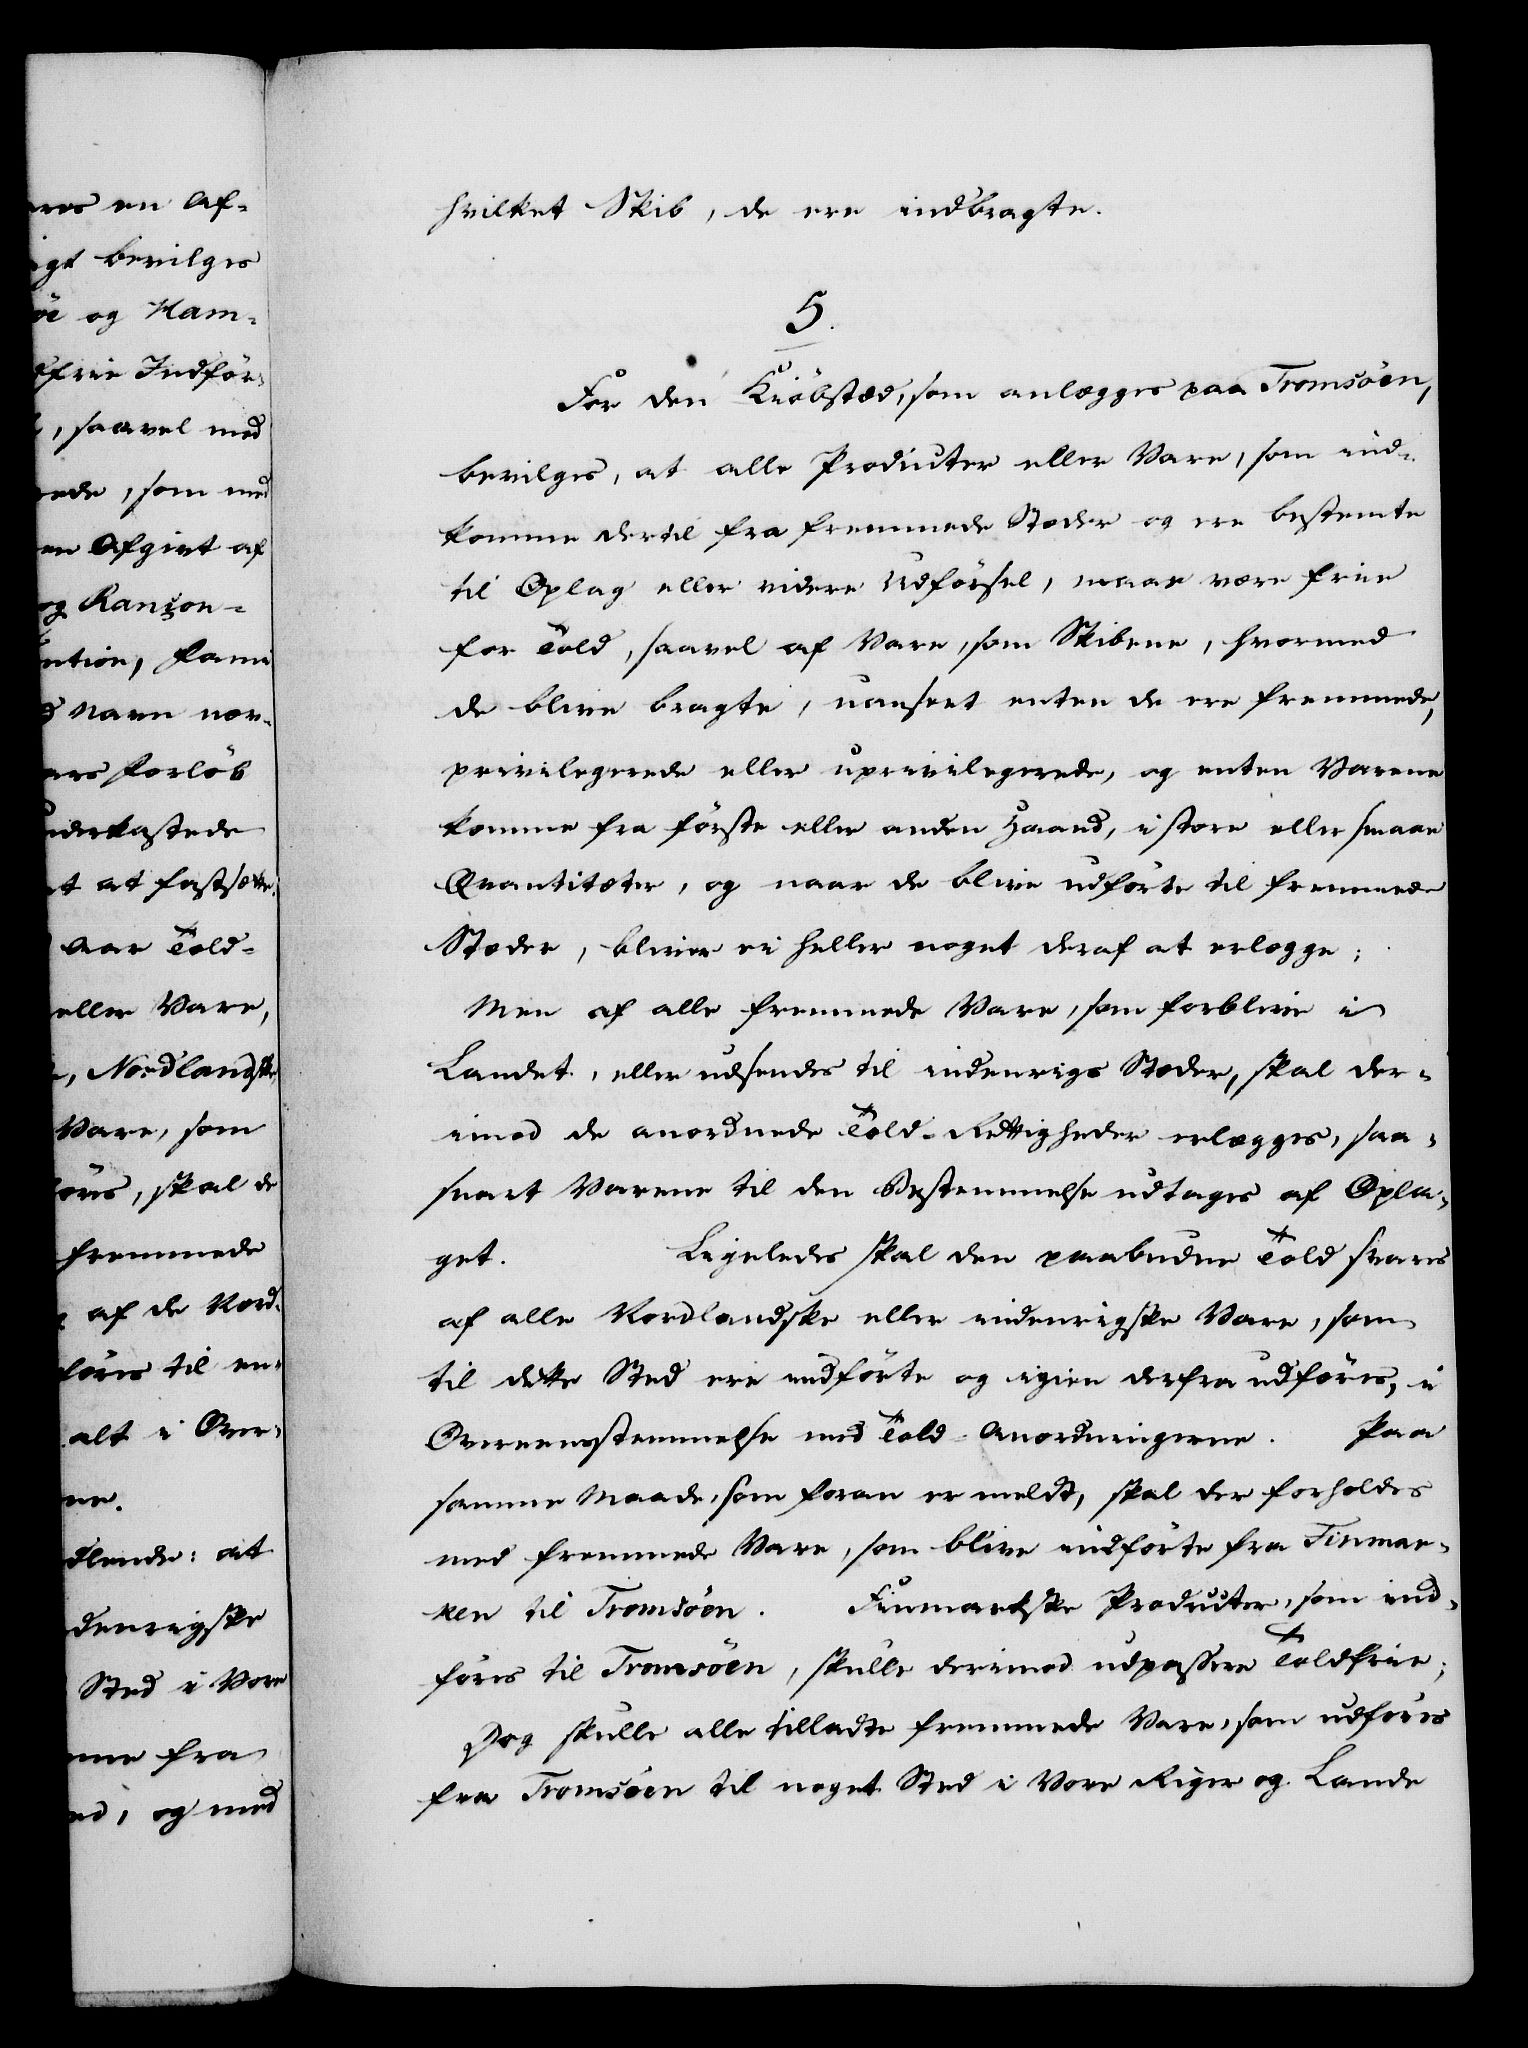 ares en Af-
igt bevilges
öe og Ham-
dfrie Indför-
, saavel med
ede, som med
en Afgivt af
og Ranzon-
ntion, fam
d Navn nev-
ars Forlöb
underkastede
t at fastsætte
Aar Told-
eller Vare,
, Nordlandske
Vare, som
föres, skal de
fremmede
af de Nord-
föres til en-
alt i Over-
ne.
dlende: at
denrigske
Sted i Vore
me fra
ed, og med
hvilket Skib, de ere indbragte.
5.
For den Kiöbstæd, som anlægges paa Tromsöen,
bevilges, at alle Producter eller Vare, som ind-
komme dertil fra fremmede Stæder og ere bestemte
til Oplag eller videre Udförsel, maae være frie
for Told, saavel af Vare, som Skibene, hvormed
de blive bragte, uanseet enten de ere fremmede,
privilegerede eller uprivilegerede, og enten Varene
komme fra förste eller anden Haand, i store eller smaae
Qvantiteter, og naar de blive udförte til fremmede
Stæder, bliver ei heller noget deraf at erlægge;
Men af alle fremmede Vare, som forblive i
Landet, eller udsendes til indenrigs Stæder, skal der-
imod de anordnede Told-Rettigheder erlægges, saa-
snart Varene til den Bestemmelse udtages af Opla-
get. Ligeledes skal den paabudne Told svares
af alle Nordlandske eller indenrigske Vare, som
til dette Sted ere indförte og igien derfra udföres, i
Overeensstemmelse med Told-Anordningerne. Paa
samme Maade, som foran er meldt, skal der forholdes
med fremmede Vare, som blive indförte fra Finmar-
ken til Tromsöen. Finmarkske Producter, som ind-
föres til Tromsöen, skulle derimod udpassere Toldfrie;
Dog skulle alle tilladte fremmede Vare, som udföres
fra Tromsöen til noget Sted i Vore Riger og Lande